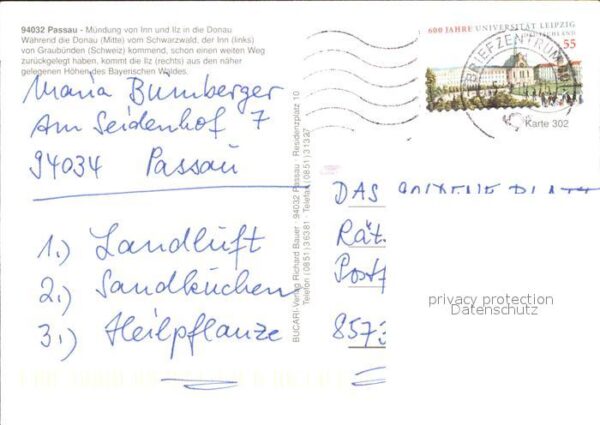 94032 Passau - Mündung von Inn und Ilz in die Donau
Während die Donau (Mitte) vom Schwarzwald, der Inn (links)
von Graubünden (Schweiz) kommend, schon einen weiten Weg
zurückgelegt haben, kommt die Ilz (rechts) aus den näher
gelegenen Höhen des Bayerischen Waldes.
Maria Bumberger
Am Seidenhof 7
94034 Passau
1.) Landluft
2.) Sandkuchen
3.) Heilpflanze
BUCARI-Verlag Richard Bauer · 94032 Passau · Residenzplatz 10
Telefon (0851) 36381 · Telefax (0851) 31327
600 JAHRE UNIVERSITÄT LEIPZIG
DEUTSCHLAND
55
BRIEFZENTRUM
Karte 302
DAS
Rät
Postf
8573
privacy protection
Datenschutz